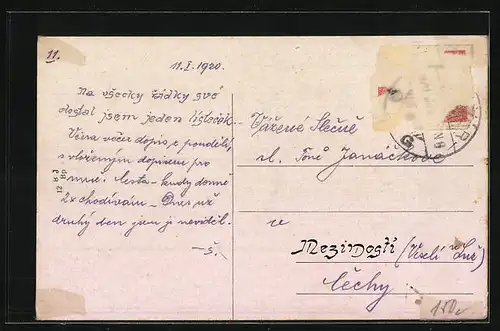 11.
11.I.1920.
Na všecky řídky své
dostal jsem jeden lísteček
Včera večer dopis z pondělí,
s vloženým dopisem pro
mne. cesta - kudy domů
2x chodívám - Dnes už
druhý den jsem ji neviděl.
-š.
Vážené Slečně
sl. Toně Janáčkové
v
Mezimostí (Veselí n Luž
Čechy
150